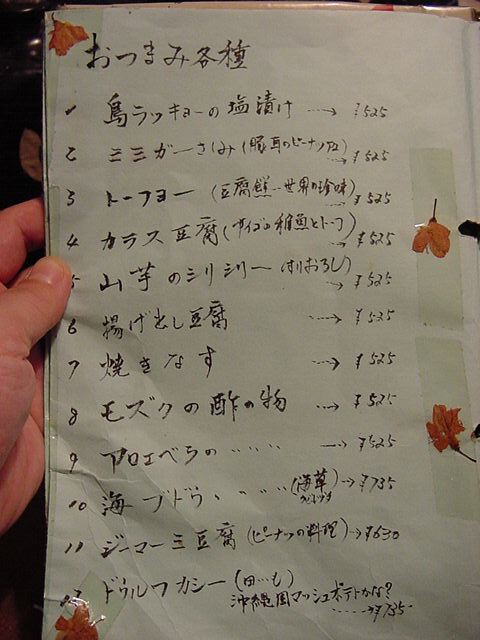 おつまみ各種
1 島ラッキョーの塩漬け ---→ ¥525
2 ミミガーさしみ (豚耳のピーナツ和え) → ¥525
3 トーフヨー (豆腐鮮--世界の珍味) → ¥525
4 カラス豆腐 (稚魚とトーフ) → ¥525
5 山芋のシリシリー (すりおろし) → ¥525
6 揚げ出し豆腐 ---→ ¥525
7 焼きなす ---→ ¥525
8 モズクの酢の物 ---→ ¥525
9 アロエベラの 〃 〃 〃 ---→ ¥525
10 海ブドウ 〃 〃 (海草) → ¥735
11 ジーマーミ豆腐 (ピーナツの料理) → ¥630
12 ドゥルワカシー (田いも)
沖縄風マッシュポテトかな?
-----→ ¥735